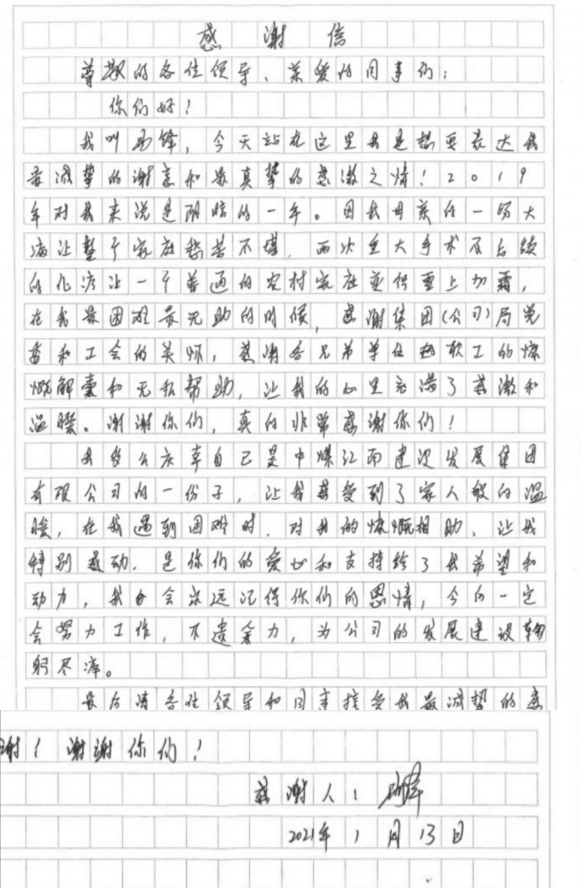 感谢信
尊敬的各位领导、亲爱的同事们：
你们好！
我叫，今天站在这里我是想要表达我
最诚挚的谢意和最真挚的感激之情！2019
年对我来说是阴暗的一年。因我母亲的一场大
病让整个家庭愁苦不堪，两次重大手术及后续
的化疗让一个普通的农村家庭变得雪上加霜，
在我最困难最无助的时候，感谢集团(公司)局党
委和工会的关怀，感谢各兄弟单位和职工的慷
慨解囊和无私帮助，让我的心里充满了感激和
温暖。谢谢你们，真的非常感谢你们！
我多么庆幸自己是中煤江南建设发展集团
有限公司的一份子，让我感受到了家人般的温
暖，在我遇到困难时，对我的慷慨相助，让我
特别感动，是你们的爱心和支持给了我希望和
动力，我会永远记得你们的恩情，今后一定
会努力工作，不遗余力，为公司的发展建设鞠
躬尽瘁。
最后请各位领导和同事接受我最诚挚的感
谢！谢谢你们！
感谢人：
2021年1月13日